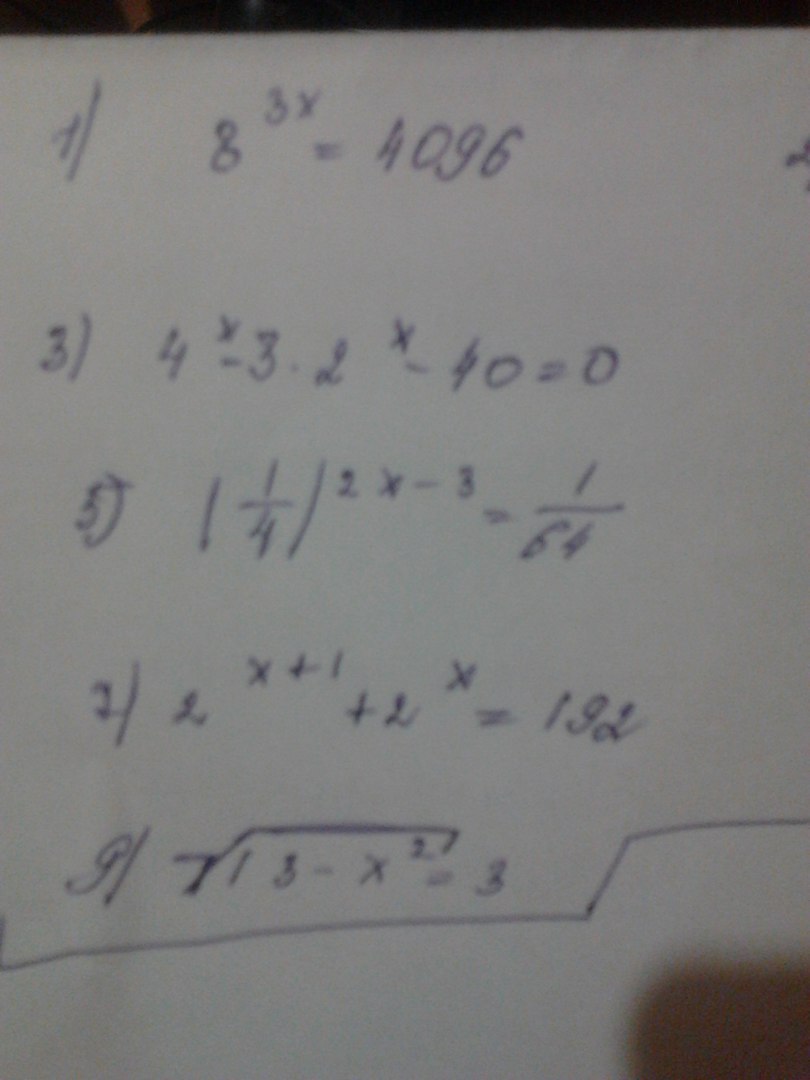 1) 8^{3x} = 4096
3) 4^x - 3 · 2^x - 40 = 0
5) (1/4)^{2x-3} = 1/64
7) 2^{x+1} + 2^x = 192
9) √(13 - x²) = 3